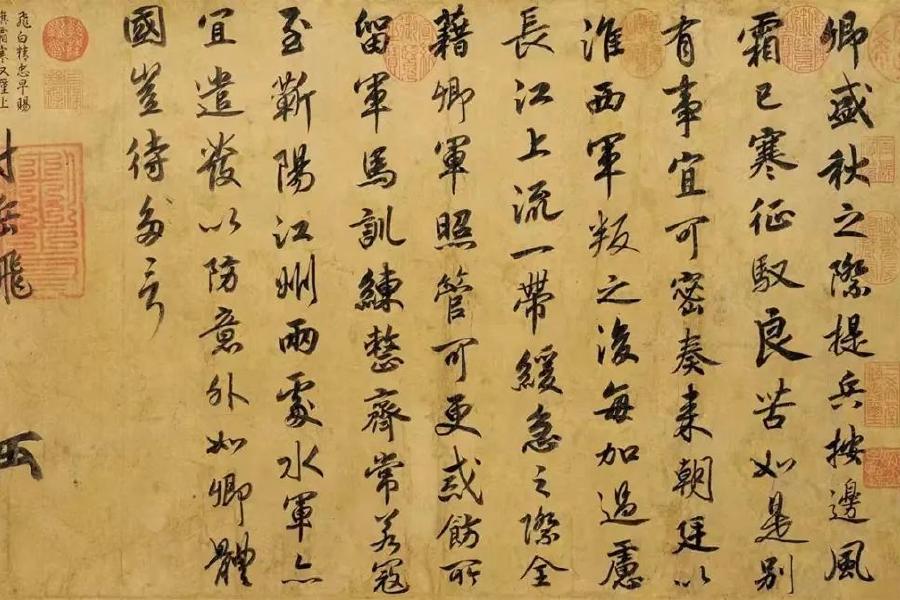 卿盛秋之際提兵按邊風
霜已寒征馭良苦如是別
有事宜可密奏来朝廷以
淮西軍叛之後每加過慮
長江上流一帶緩急之際全
藉卿軍照管可更戒飭所
留軍馬訓練整齊常若寇
至蘄陽江州兩處水軍亦
宜遣發以防意外如卿體
國豈待多言
付岳飛
飛白精忠早賜